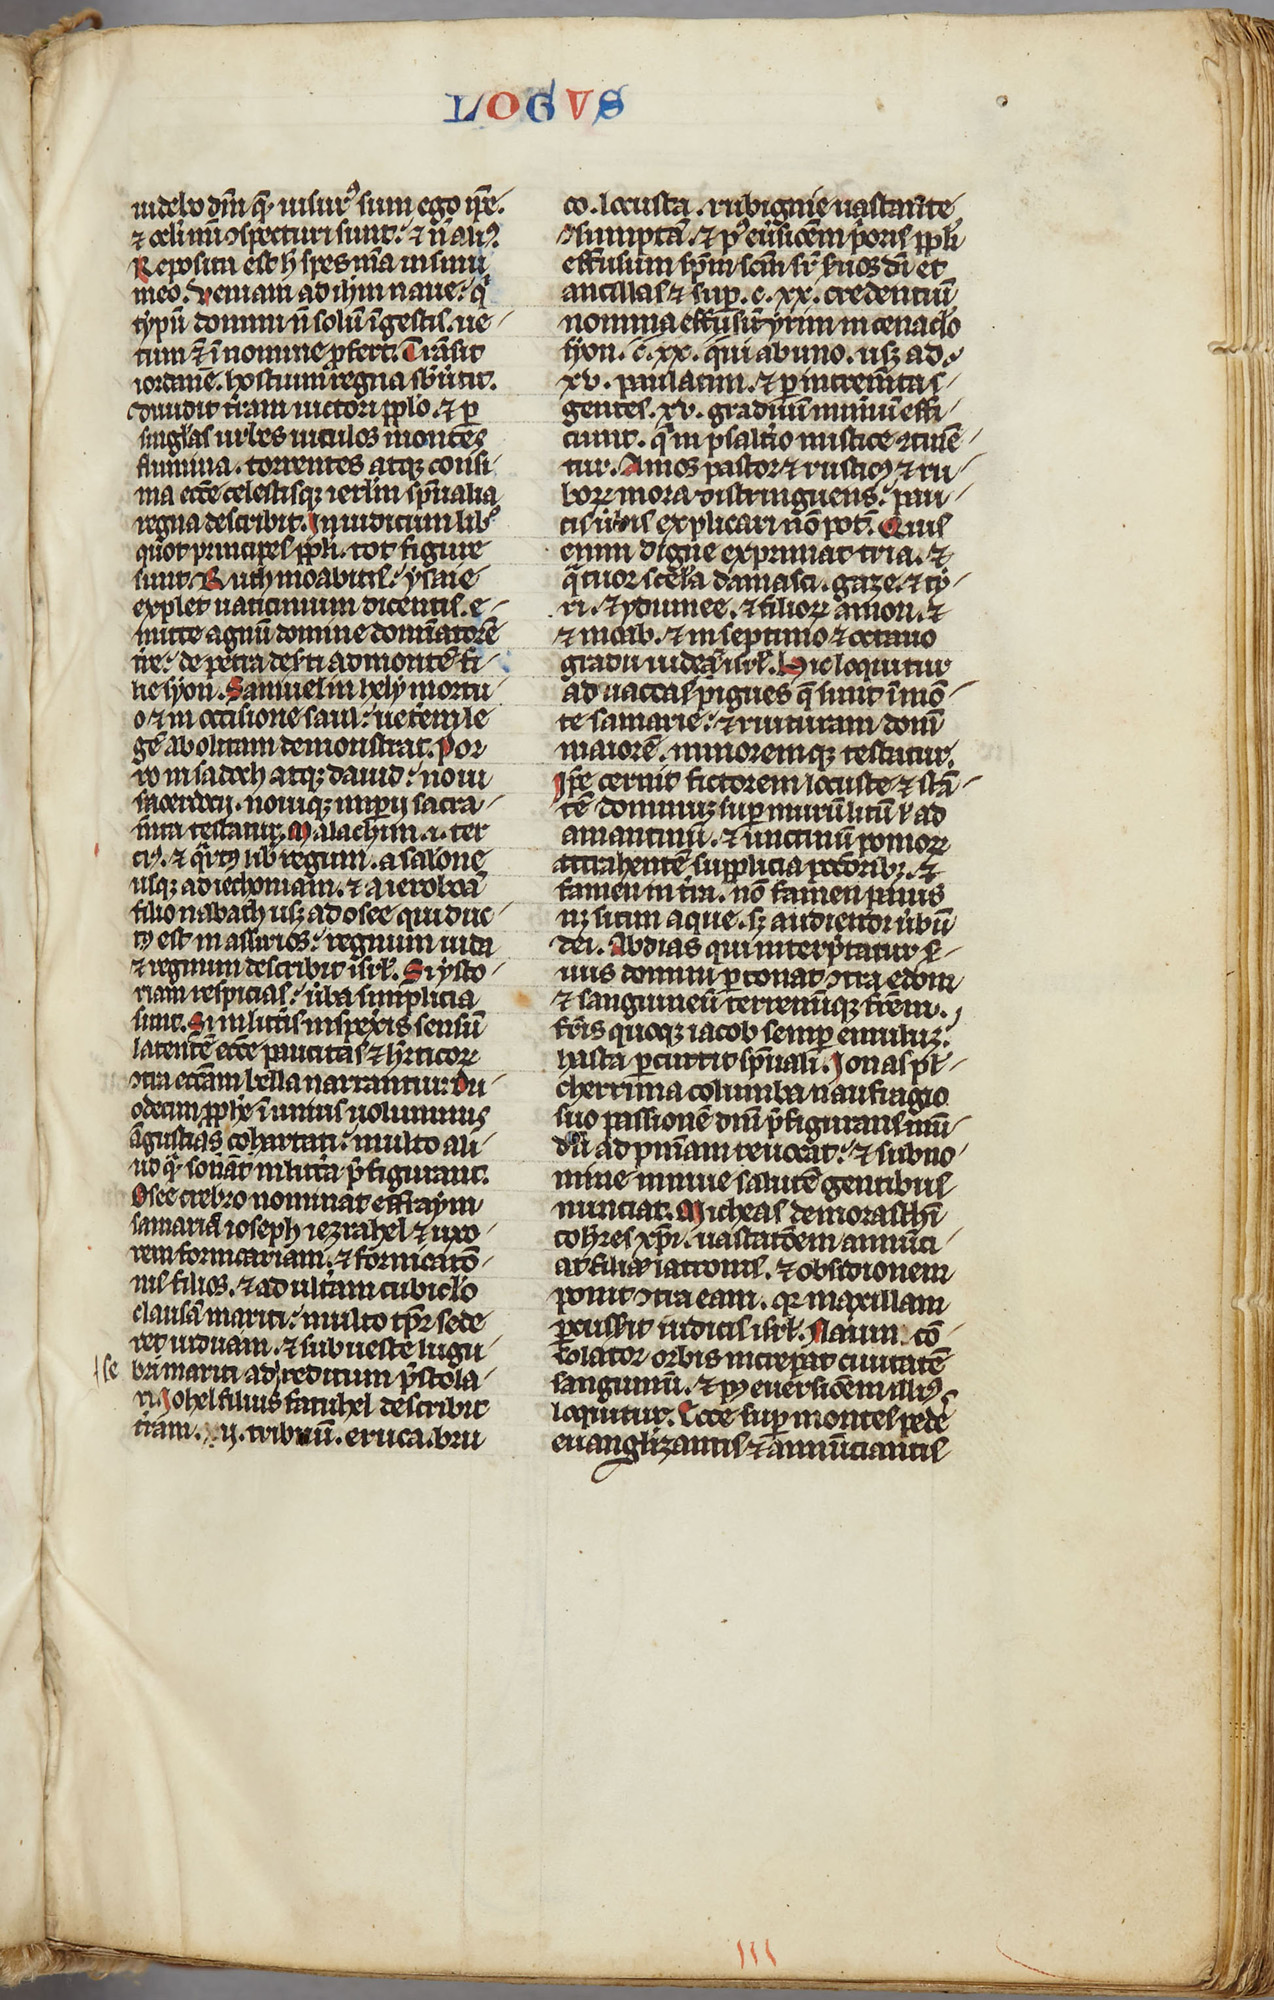 LOGVS
uidebo dñm q̃ uisur᷒ sum ego ip̃e.
⁊ oculi mi ɔspecturi sunt. ⁊ ñ ali᷒.
Reposita est h̃ spes m̃a in sinu
meo. Veniam ad ih̃m naue. q̃
typũ domini ñ solũ ĩ gestis. ue
rum ⁊ ĩ nomine p̃fert. Trãsit
iordanẽ. hostium regna sb̃uertit.
diuidit t̃ram uictori pp̃lo. ⁊ p
singl̃as urbes uiculos montes
flumina. torrentes atqꝫ confi
nia ecc̃e celestisqꝫ ierl̃m sp̃ualia
regna describit. In iudicum lib᷒
quot principes pp̃li. tot figure
sunt. Ruth moabitis. ysaie
explet uaticinium dicentis. e
mitte agnũ domine dominatorẽ
t̃re. de petra deserti ad montẽ fi
lie syon. Samuel in hely mortu
o ⁊ in occisione saul. ueterem le
gẽ abolitam demonstrat. Por
ro in sadoch atqꝫ dauid. noui
sacerdocii. nouiqꝫ imp̃ij sacra
m̃ta testatur. Malachim .i. ter
ci᷒. ⁊ q̃rt᷒ lib̃ regum. a salomone
usqꝫ ad iechoniam. ⁊ a ieroboã
filio nabath usqꝫ ad osee qui duc
t᷒ est in assirios. regnum iuda
⁊ regnum describit isrl̃. Si ysto
riam respicias. ũba simplicia
sunt. Si in litt̃is inspexis sensũ
latentẽ ecc̃e paucitas ⁊ h̃eticoꝝ
ɔtra ecc̃am bella narrantur. Du
odecim pp̃he ĩ unius uoluminis
ãgustias cohartati. multo ali
ud q̃ sonãt in litt̃a p̃figurant.
Osee crebro nominat effraym
samariã ioseph iezrahel ⁊ uxo
rem fornicariam. ⁊ fornicatõ
nis filios. ⁊ adult̃am cubiclo
clausã mariti. multo tp̃r sede
ret uiduam. ⁊ sub ueste lugu
bri mariti ad se reditum p̃stola
ri. Johel filius fatuhel describit
t̃ram .xij. tribuũ. eruca. bru
co. locusta. rubigine uastante
ɔsumptã. ⁊ p᷒ euersicẽm prioris pp̃li
effusum sp̃m sc̃m sr̃ seruos dei et
ancillas ⁊ sup .c. xx. credentiũ
nomina effusũ yrim in cenaclo
syon. c. xx. qui ab uno. usqꝫ ad
xv. paulatim. ⁊ p incrementa s
gentes. xv. graduũ numerũ effi
ciunt. q̃ in psalt̃io mistice ɔtinẽ
tur. Amos pastor ⁊ rustic᷒ ⁊ ru
borꝝ mora distringuens. pau
cis ũbis explicari nõ pot̃. Quis
enim digne exprimat tria. ⁊
q̃tuor scel̃a damasci. gaze. ⁊ ty
ri. ⁊ ydumee. ⁊ filiorꝝ amon. ⁊
⁊ moab. ⁊ in septimo ⁊ octauo
gradu iude ⁊ isrl̃. Hic loquitur
ad uaccas pigues q̃ sunt ĩ mõ
te samarie. ⁊ ruituram domũ
maiorẽ. minoremqꝫ testatur.
Ip̃e cernit fictorem locuste ⁊ stã
tẽ dominuꝫ sup murũ litũ ł ad
amantinũ. ⁊ uncinũ pomorꝝ
attrahentẽ supplicia peccatoribꝫ. ⁊
famem in t̃ra. nõ famem panis
nꝫ sitim aque. sꝫ audiendi ũbũ
dei. Abdias qui interp̃tatur s̃
uus domini p tonat ɔtra edom
⁊ sanguineũ terrenũqꝫ homĩem.
fr̃is quoqꝫ iacob semp emuluꝫ.
hasta p cutit sp̃uali. Jonas pul
cherrima columba naufragio
suo passionẽ dñi p̃figurans mũ
dũ ad penitentiam reuocat. ⁊ sub no
mine niniue salutẽ gentibus
nunciat. Micheas de morasthi
coh̃es xp̃i. uastatõem annũci
at filie latronis. ⁊ obsidionem
ponit ɔtra eam. qꝛ maxillam
p̃cussit iudicis isrl̃. Naum cõ
solator orbis increpat ciuitatẽ
sanguinũ. ⁊ p᷒ euersicẽm illi᷒
loquitur. Ecce sup montes pedes
euanglizantis ⁊ annũciantis
III